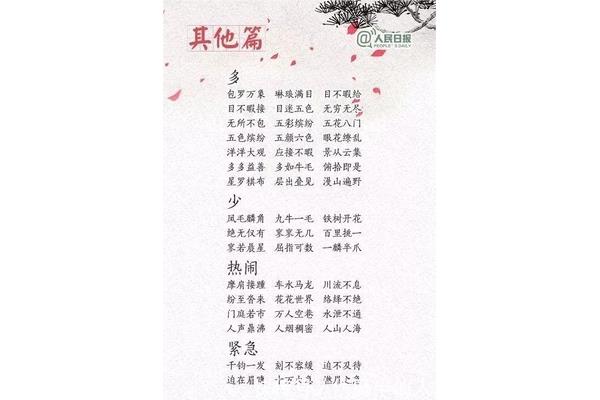 其他篇
@人民日报
PEOPLE'S DAILY
多
包罗万象 琳琅满目 目不暇给
目不暇接 目迷五色 无穷无尽
无所不包 五彩缤纷 五花八门
五色缤纷 五颜六色 眼花缭乱
洋洋大观 应接不暇 景从云集
多多益善 多如牛毛 俯拾即是
星罗棋布 层出叠见 漫山遍野
少
凤毛麟角 九牛一毛 铁树开花
绝无仅有 寥寥无几 百里挑一
寥若晨星 屈指可数 一鳞半爪
热闹
摩肩接踵 车水马龙 川流不息
纷至沓来 花花世界 络绎不绝
门庭若市 万人空巷 水泄不通
人声鼎沸 人烟稠密 人山人海
紧急
千钧一发 刻不容缓 迫不及待
迫在眉睫 十万火急 燃眉之急